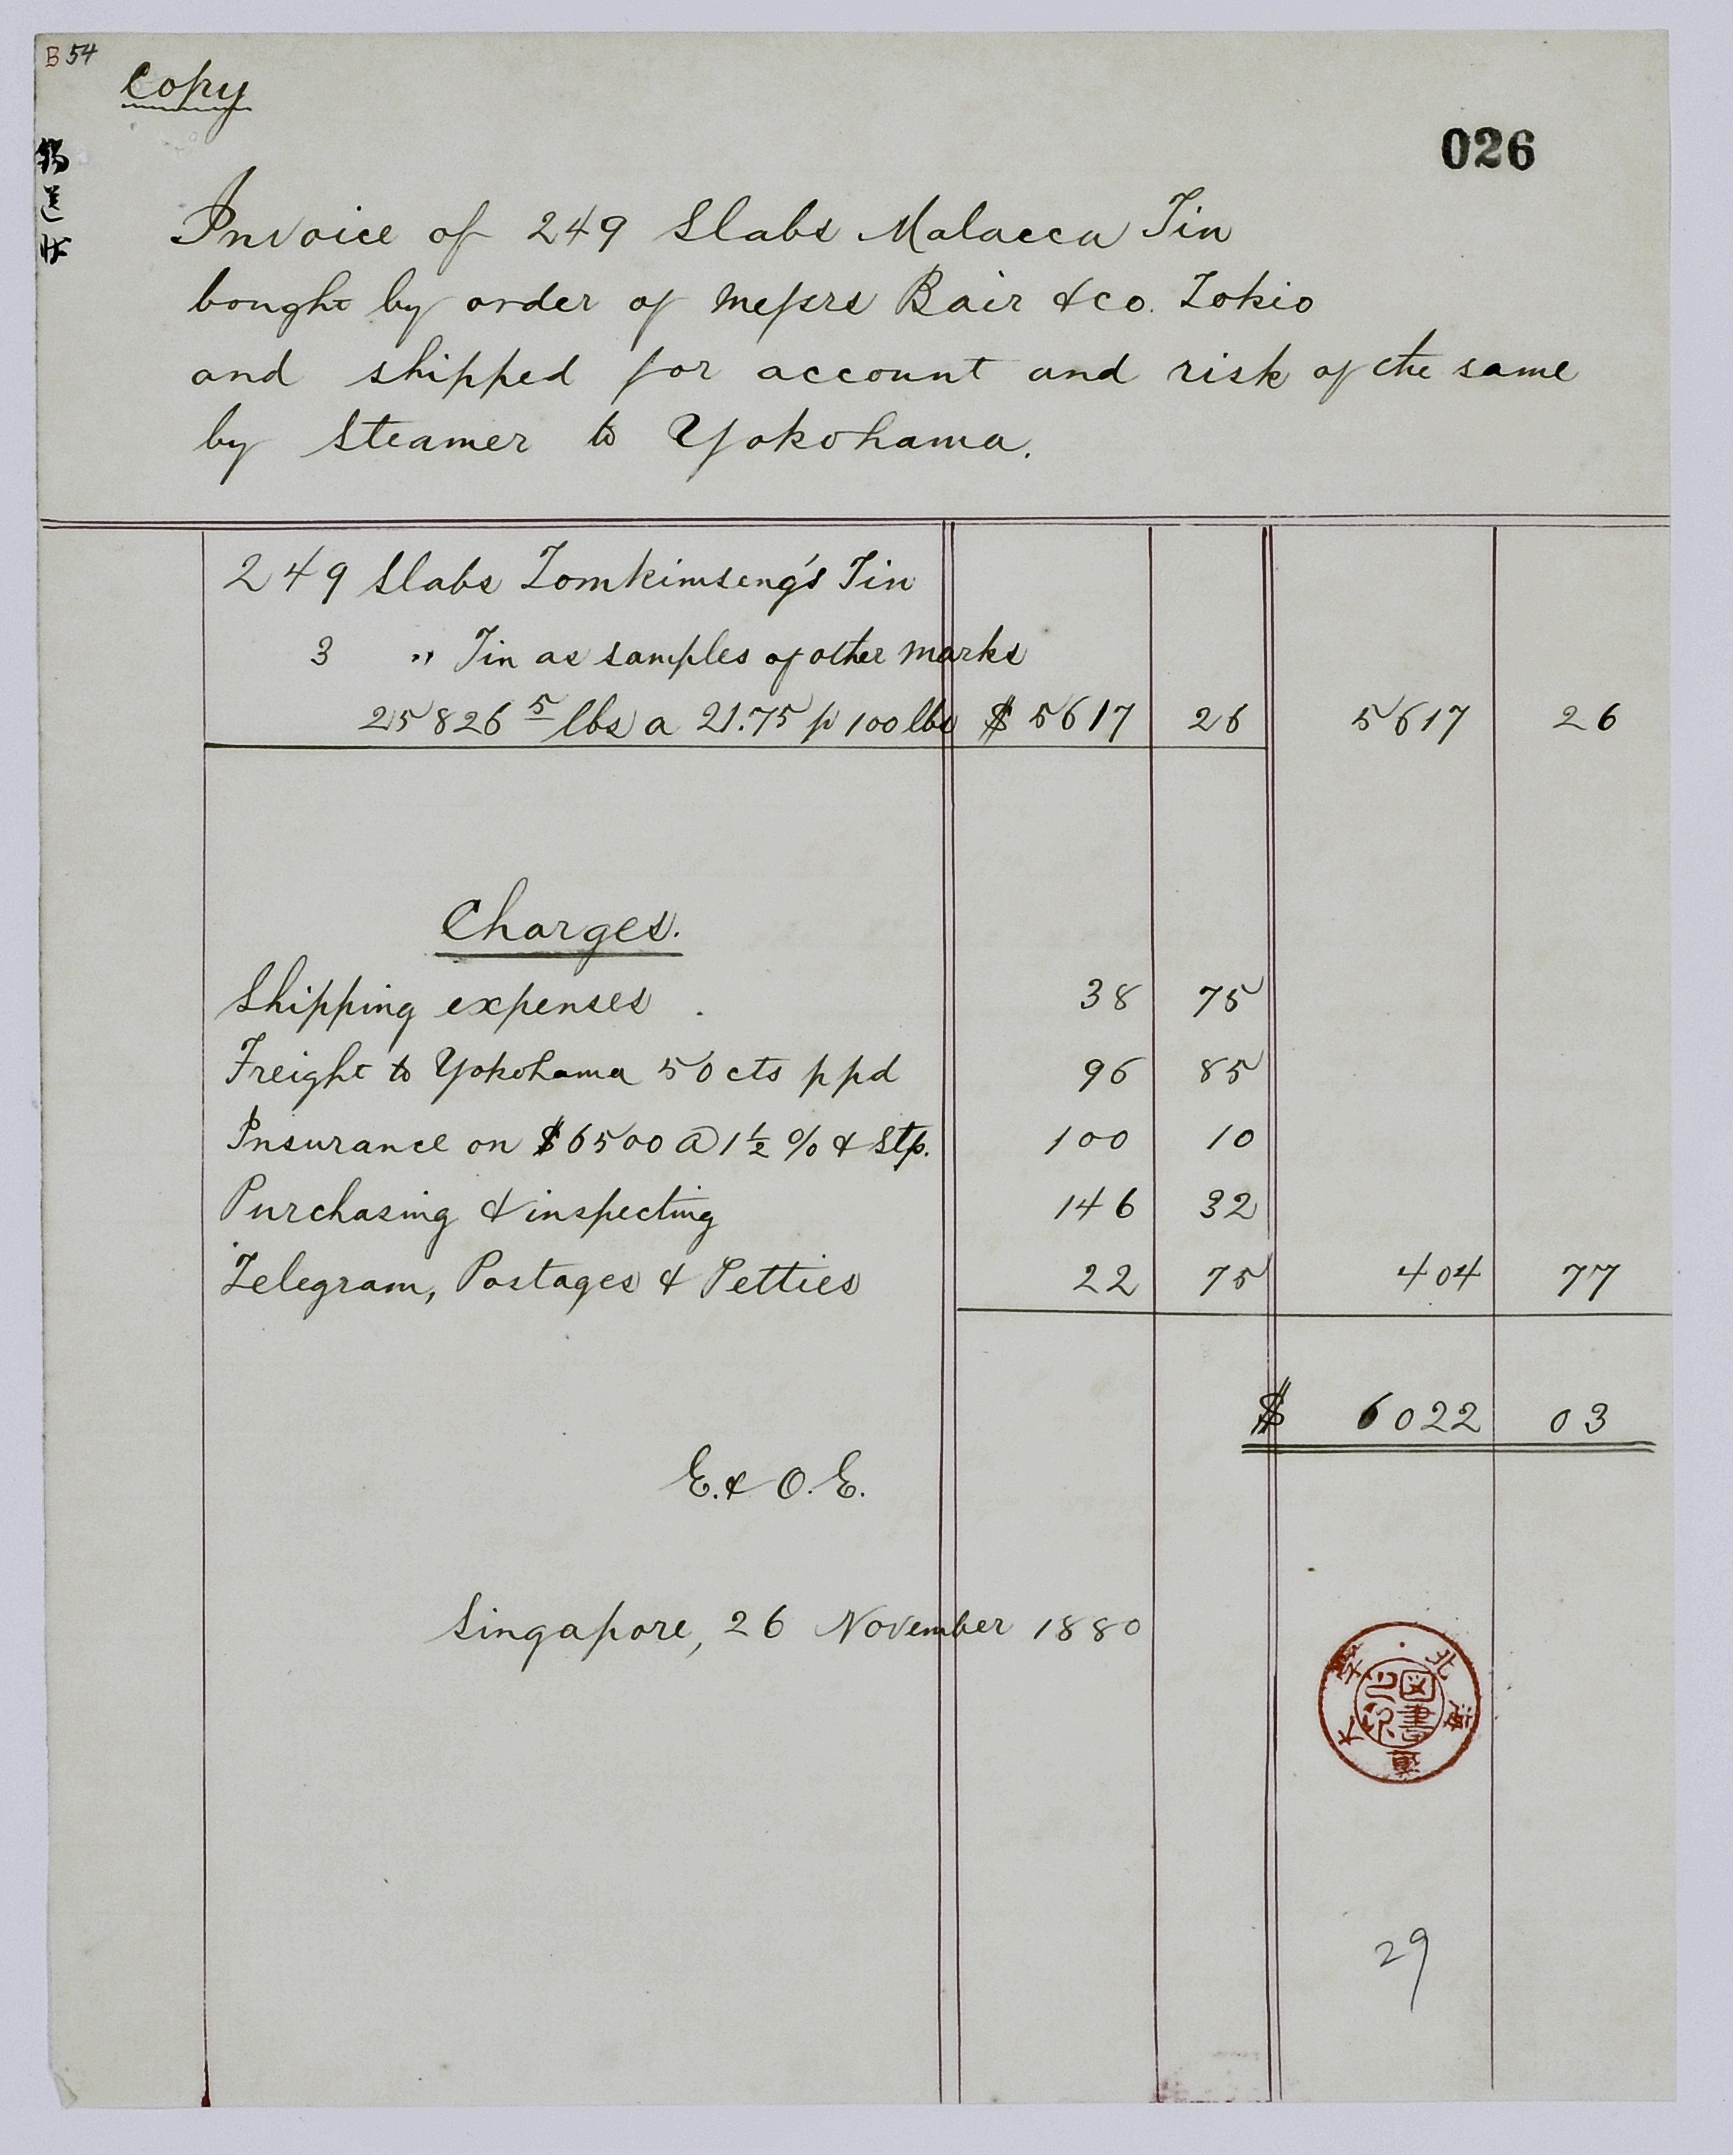 B 54
Copy
026
錫送状
Invoice of 249 Slabs Malacca Tin
bought by order of Messrs Bair & Co. Tokio
and shipped for account and risk of the same
by Steamer to Yokohama.
249 Slabs Tomkimseng's Tin
3 " Tin as samples of other marks
25826 5 lbs a 21.75 p 100 lbs $ 5617 26 5617 26
Charges.
Shipping expenses . 38 75
Freight to Yokohama 50 cts p pd 96 85
Insurance on $6500 @ 1 1/2 % & Stp. 100 10
Purchasing & inspecting 146 32
Telegram, Postages & Petties 22 75 404 77
$ 6022 03
E. & O. E.
Singapore, 26 November 1880
北海道大學
図書
29